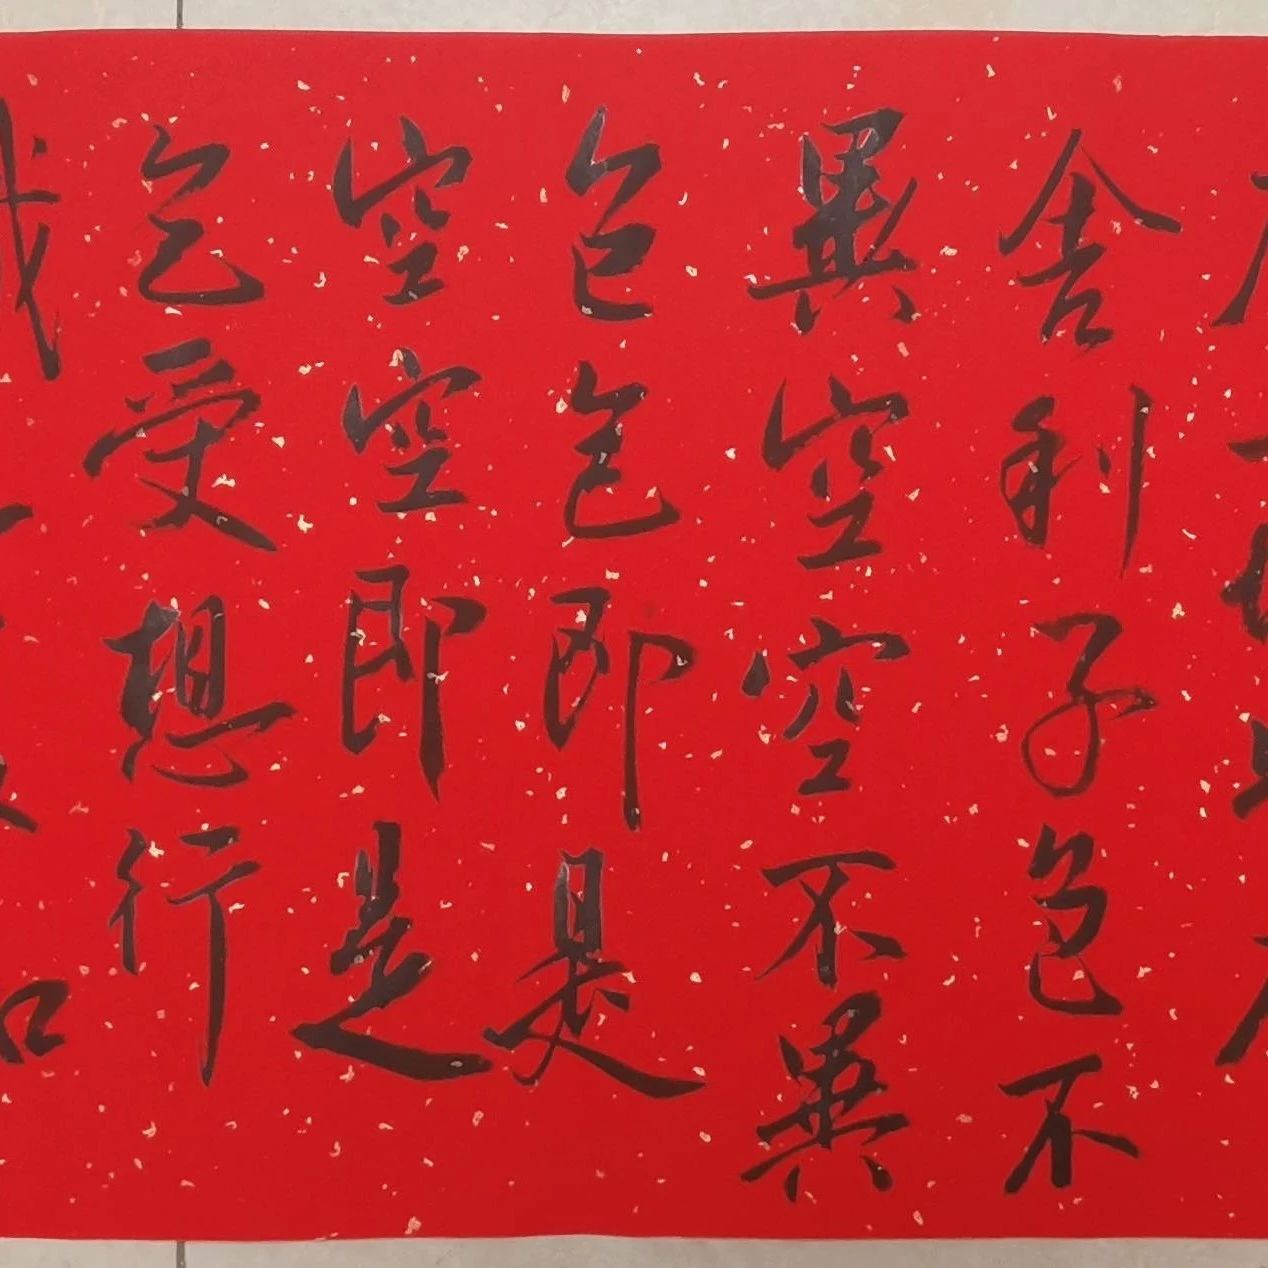 舍利子色不
異空空不異
色色即是
空空即是
色受想行